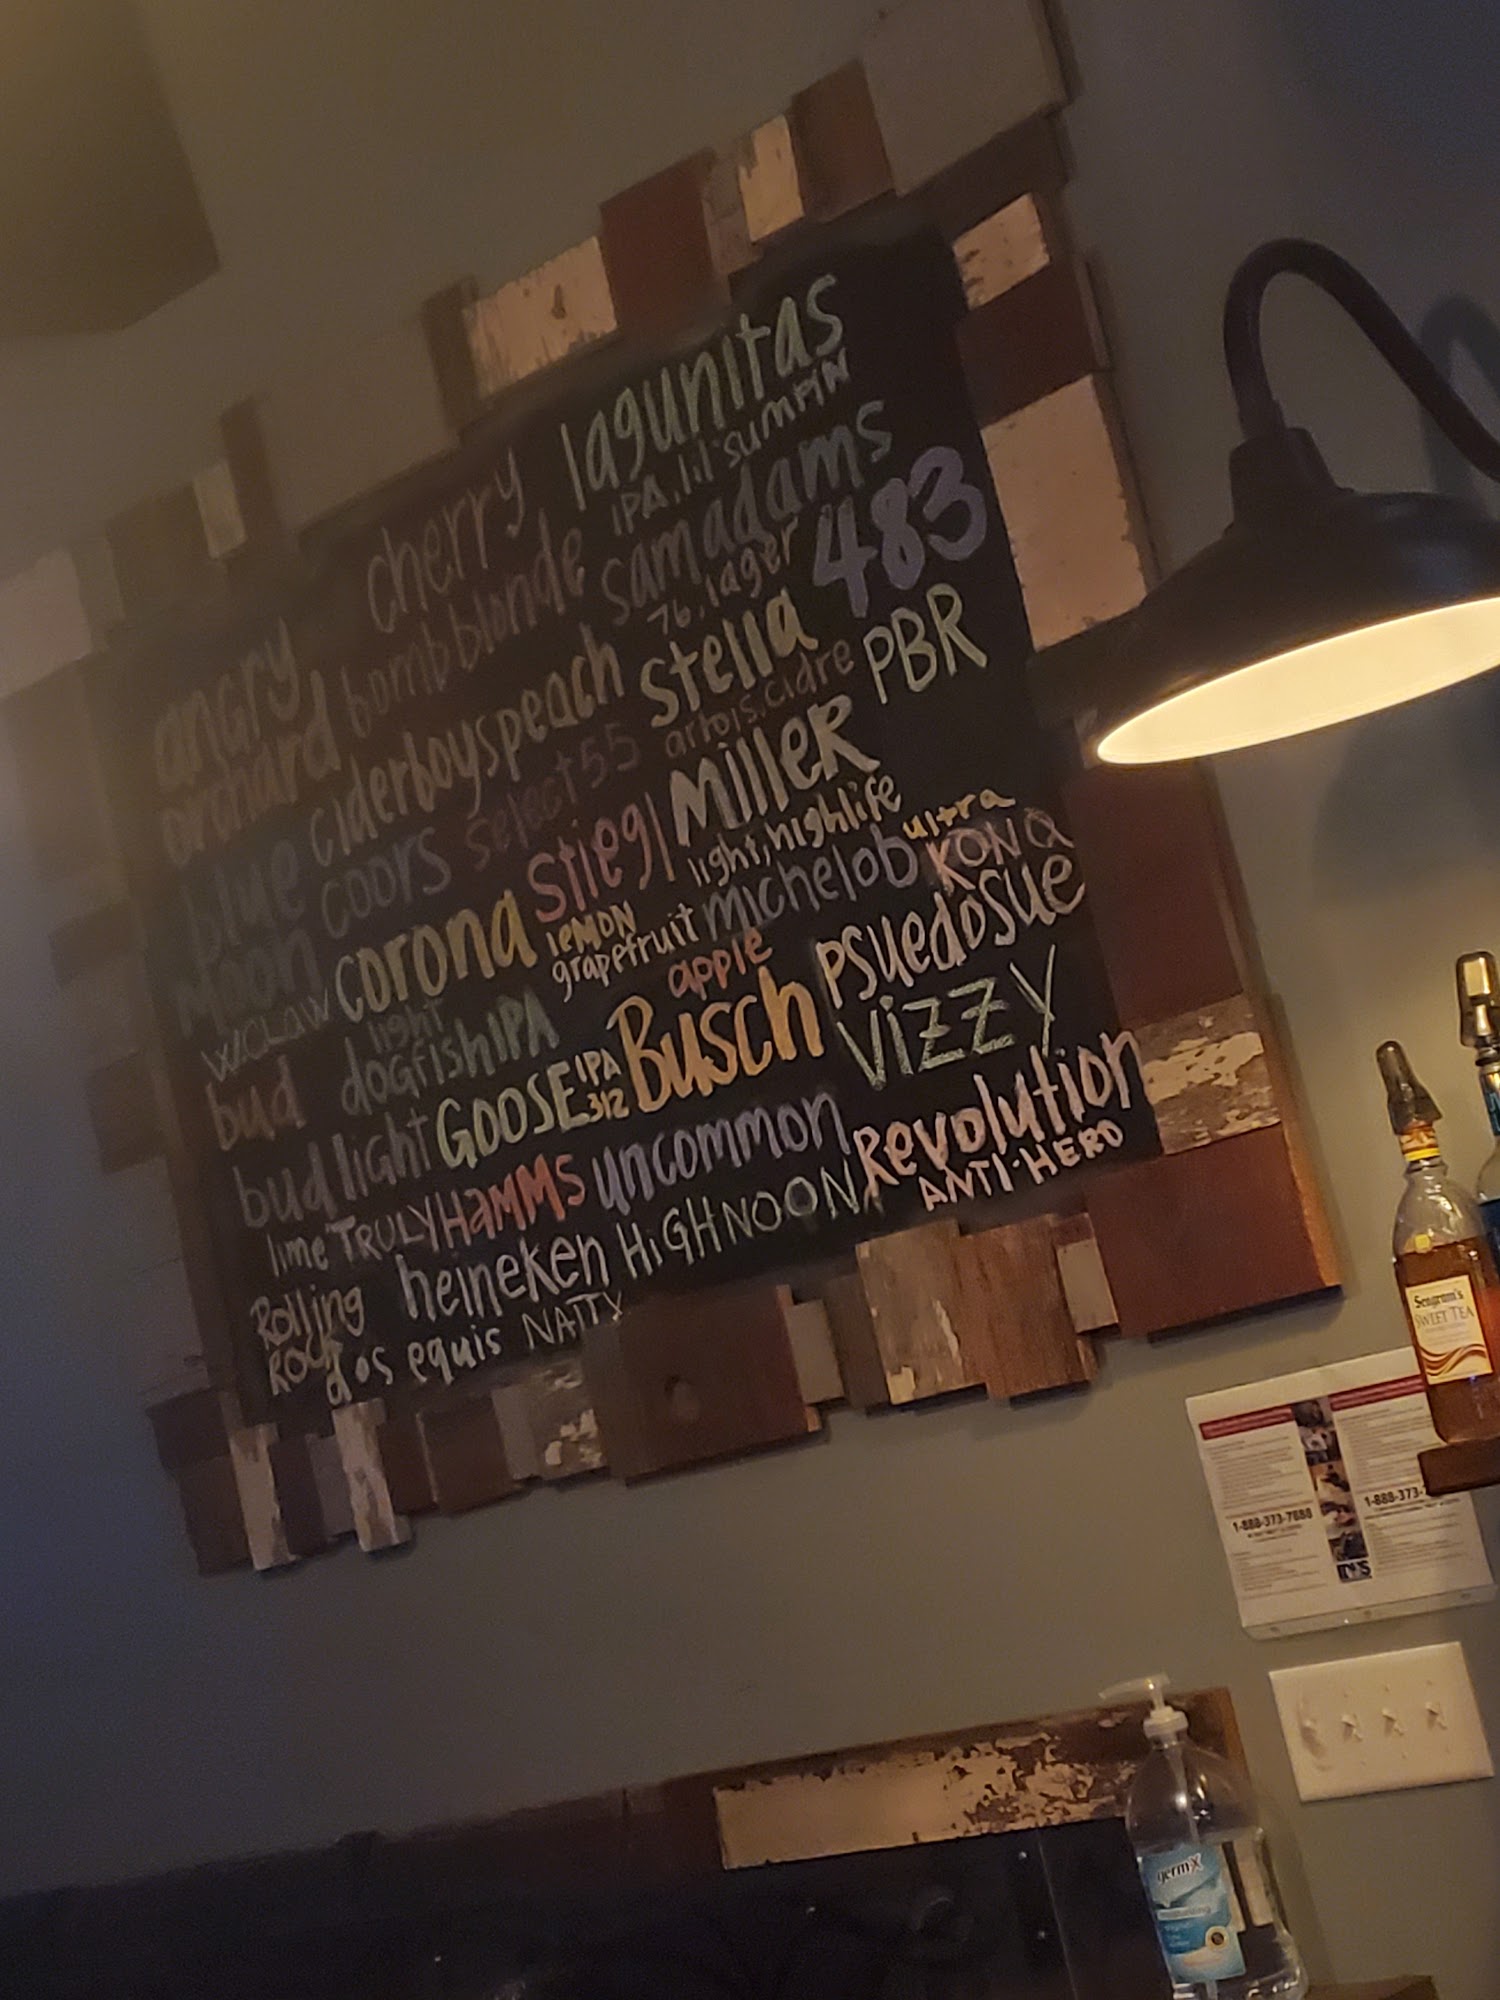 lagunitas
IPA, lil' sumpin
cherry
bomb blonde
samadams
76, lager
483
angry
orchard
ciderboys peach
stella
artois, cidre
PBR
select 55
MilleR
light, highlife
blue
moon
coors
stiegl
LEMON
grapefruit
michelob
ultra
KONa
corona
light
w.CLAW
apple
Busch
PSuedoSUE
dogfish IPA
bud
GOOSE IPA
312
VIZZY
bud light
lime
TRULY
HaMMS
uncommon
Revolution
ANTI-HERO
Rolling
ROCK
heineken
HIGH NOON
dos equis
NATTY
Seagram's
SWEET TEA
1-888-373-7888
1-888-373-7
germ-x